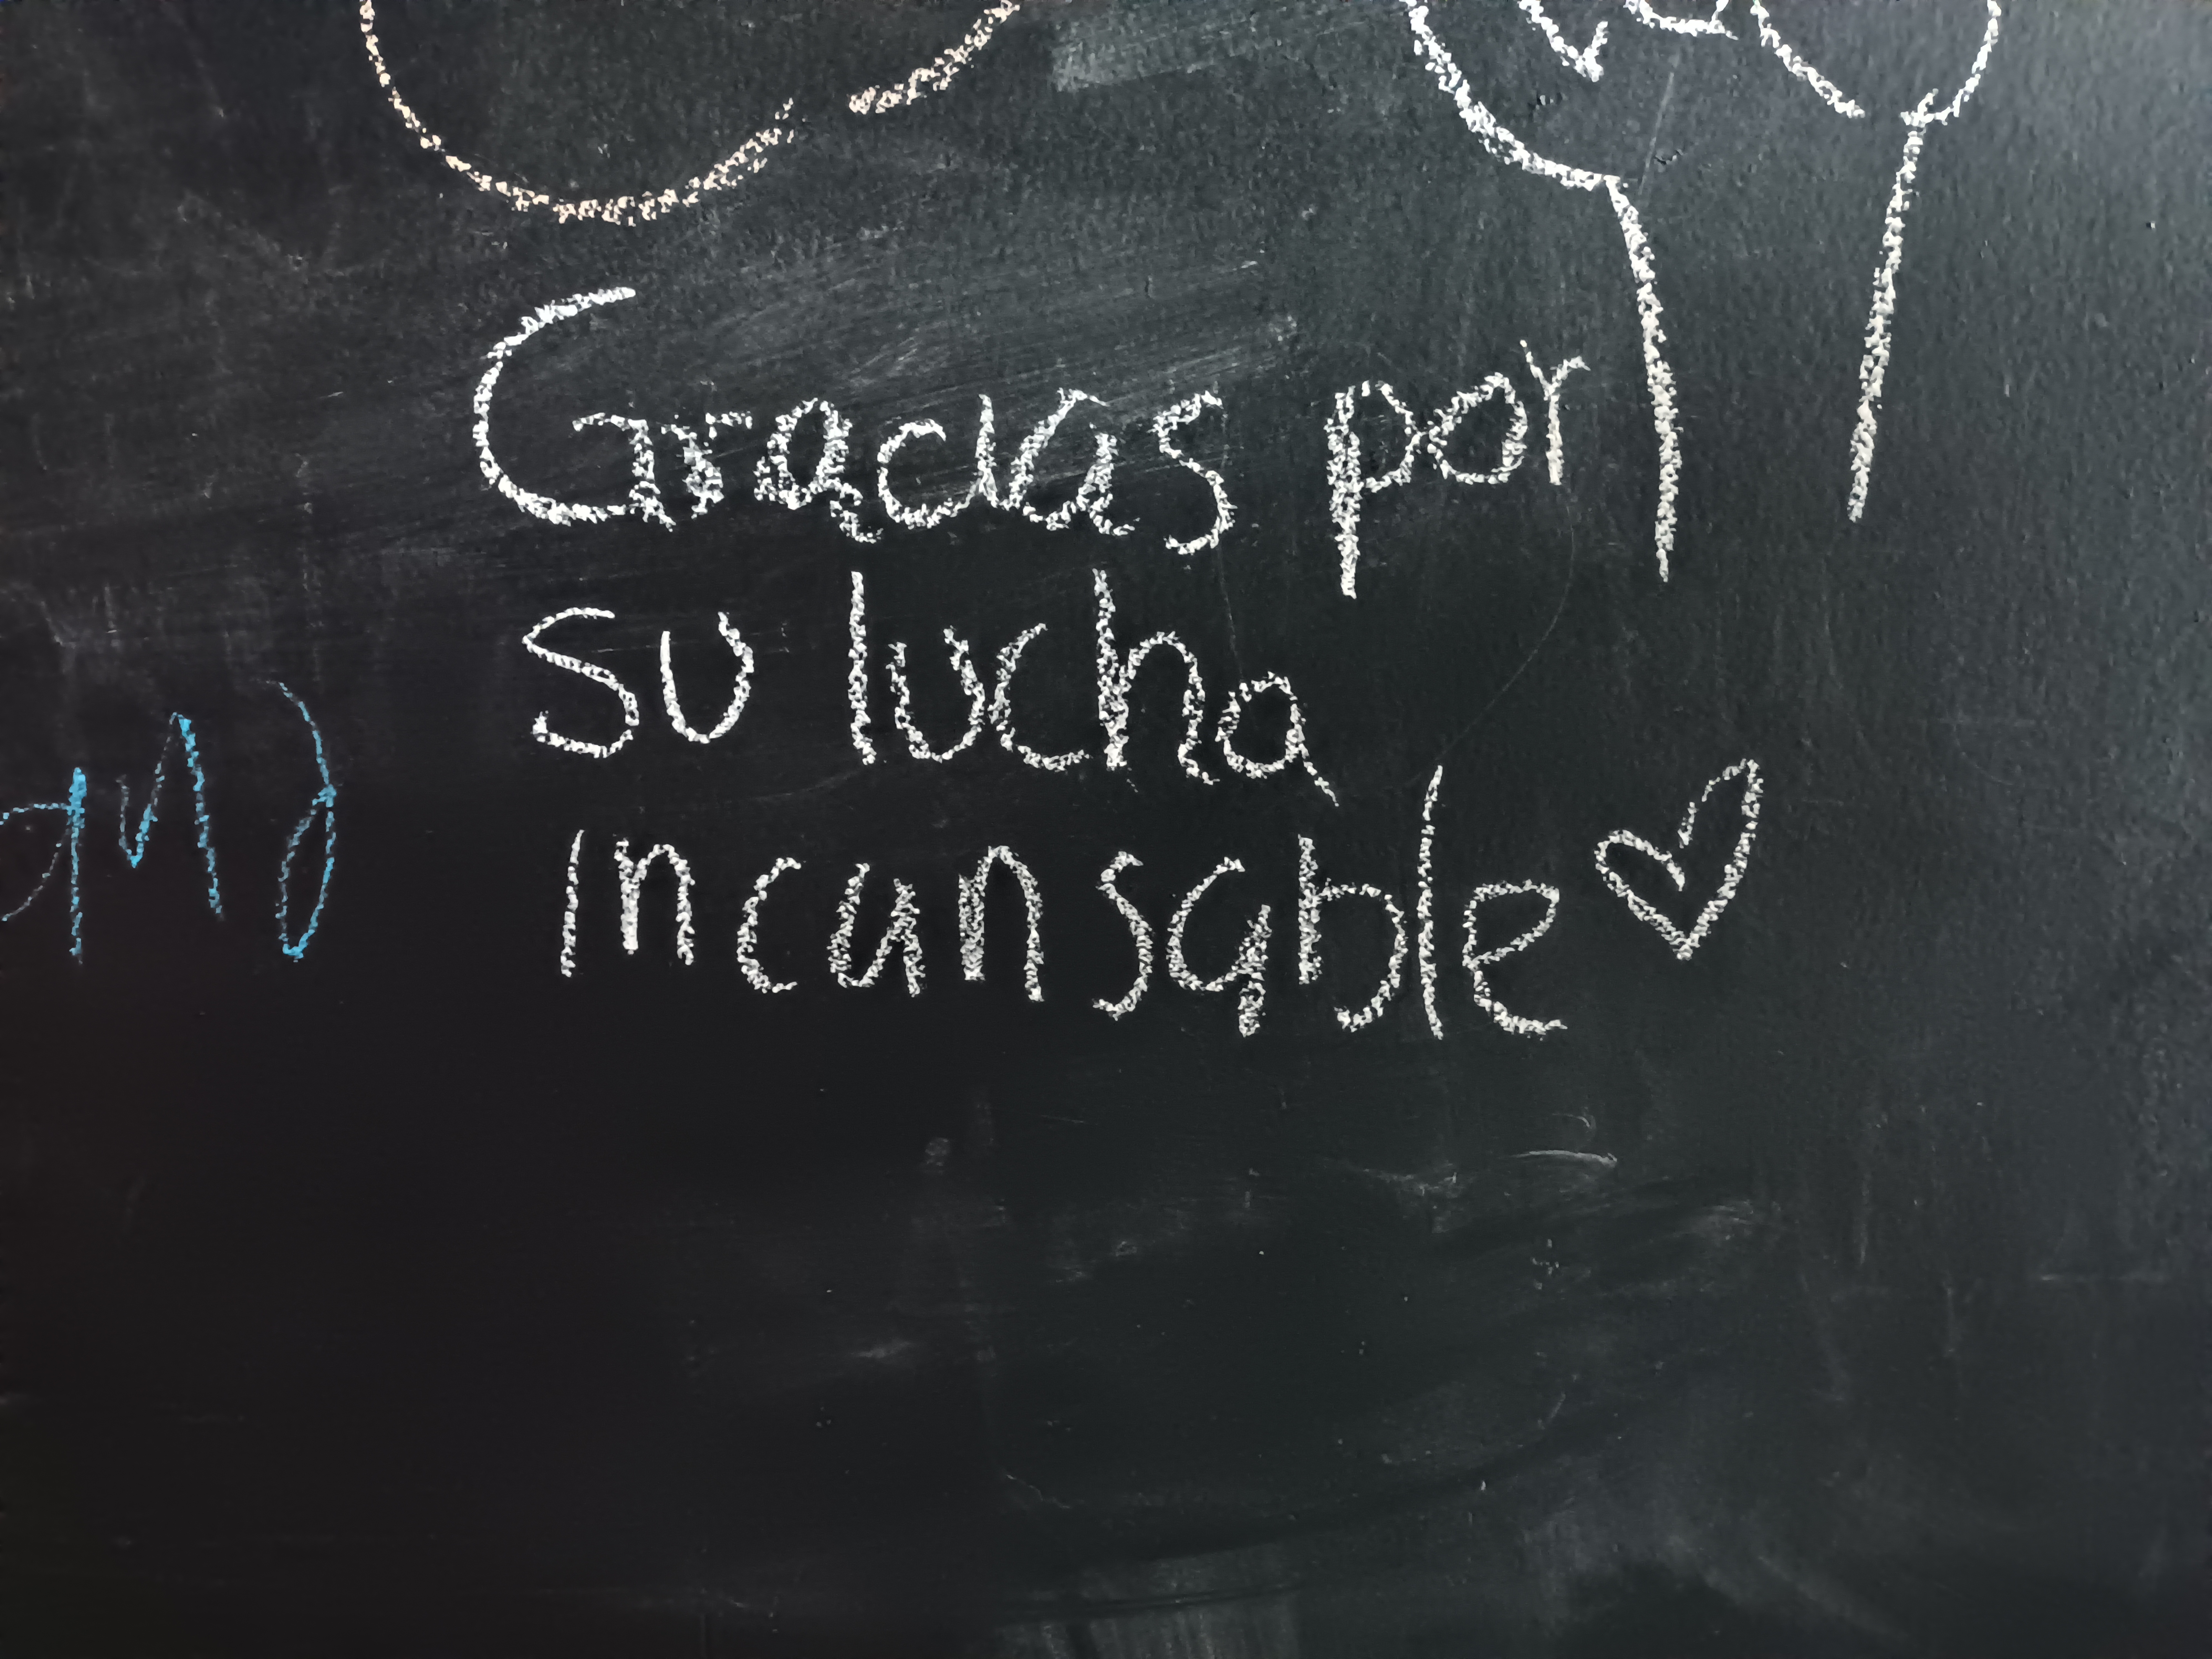 Gracias por
su lucha
incansable ♡